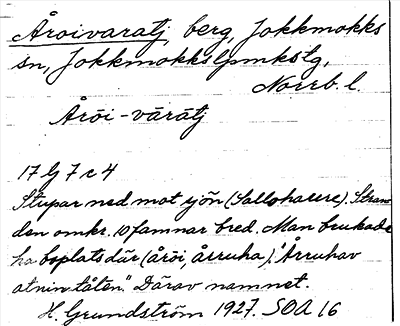 Åroivaratj, berg, Jokkmokks
sn, Jokkmokkslpmkslg,
Norrb. l.
Årōi - vārātj
17 G 7 c 4
Stupar ned mot sjön (Sallohaure). Stran
den omkr. 10 famnar bred. Man brukade
ha boplats där (årōi, årruha). "Årruhav
atnin tåten." Därav namnet.
H. Grundström 1927. SOA 16